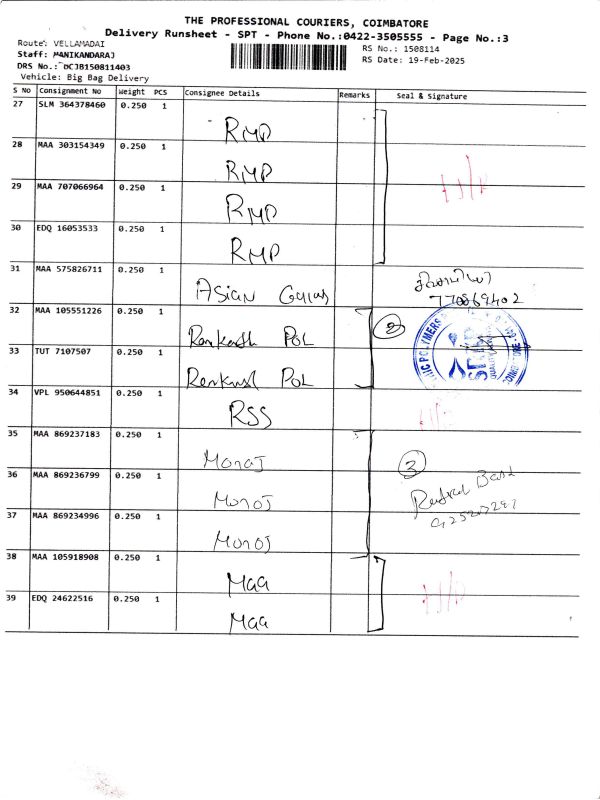 THE PROFESSIONAL COURIERS, COIMBATORE
Delivery Runsheet - SPT - Phone No.:0422-3505555 - Page No.:3
Route: VELLAMADAI
RS No.: 1508114
Staff: MANIKANDARAJ
RS Date: 19-Feb-2025
DRS No.: DCJB150811403
Vehicle: Big Bag Delivery
S No Consignment No Weight PCS Consignee Details Remarks Seal & Signature
27 SLM 364378460 0.250 1 RMP
28 MAA 303154349 0.250 1 RMP
29 MAA 707066964 0.250 1 RMP
30 EDQ 16053533 0.250 1 RMP
31 MAA 575826711 0.250 1 Asian
32 MAA 105551226 0.250 1 POL 2
33 TUT 7107507 0.250 1 POL
34 VPL 950644851 0.250 1 RSS
35 MAA 869237183 0.250 1 Monoj
36 MAA 869236799 0.250 1 Monoj 3
37 MAA 869234996 0.250 1 Monoj
38 MAA 105918908 0.250 1 Maa
39 EDQ 24622516 0.250 1 Maa